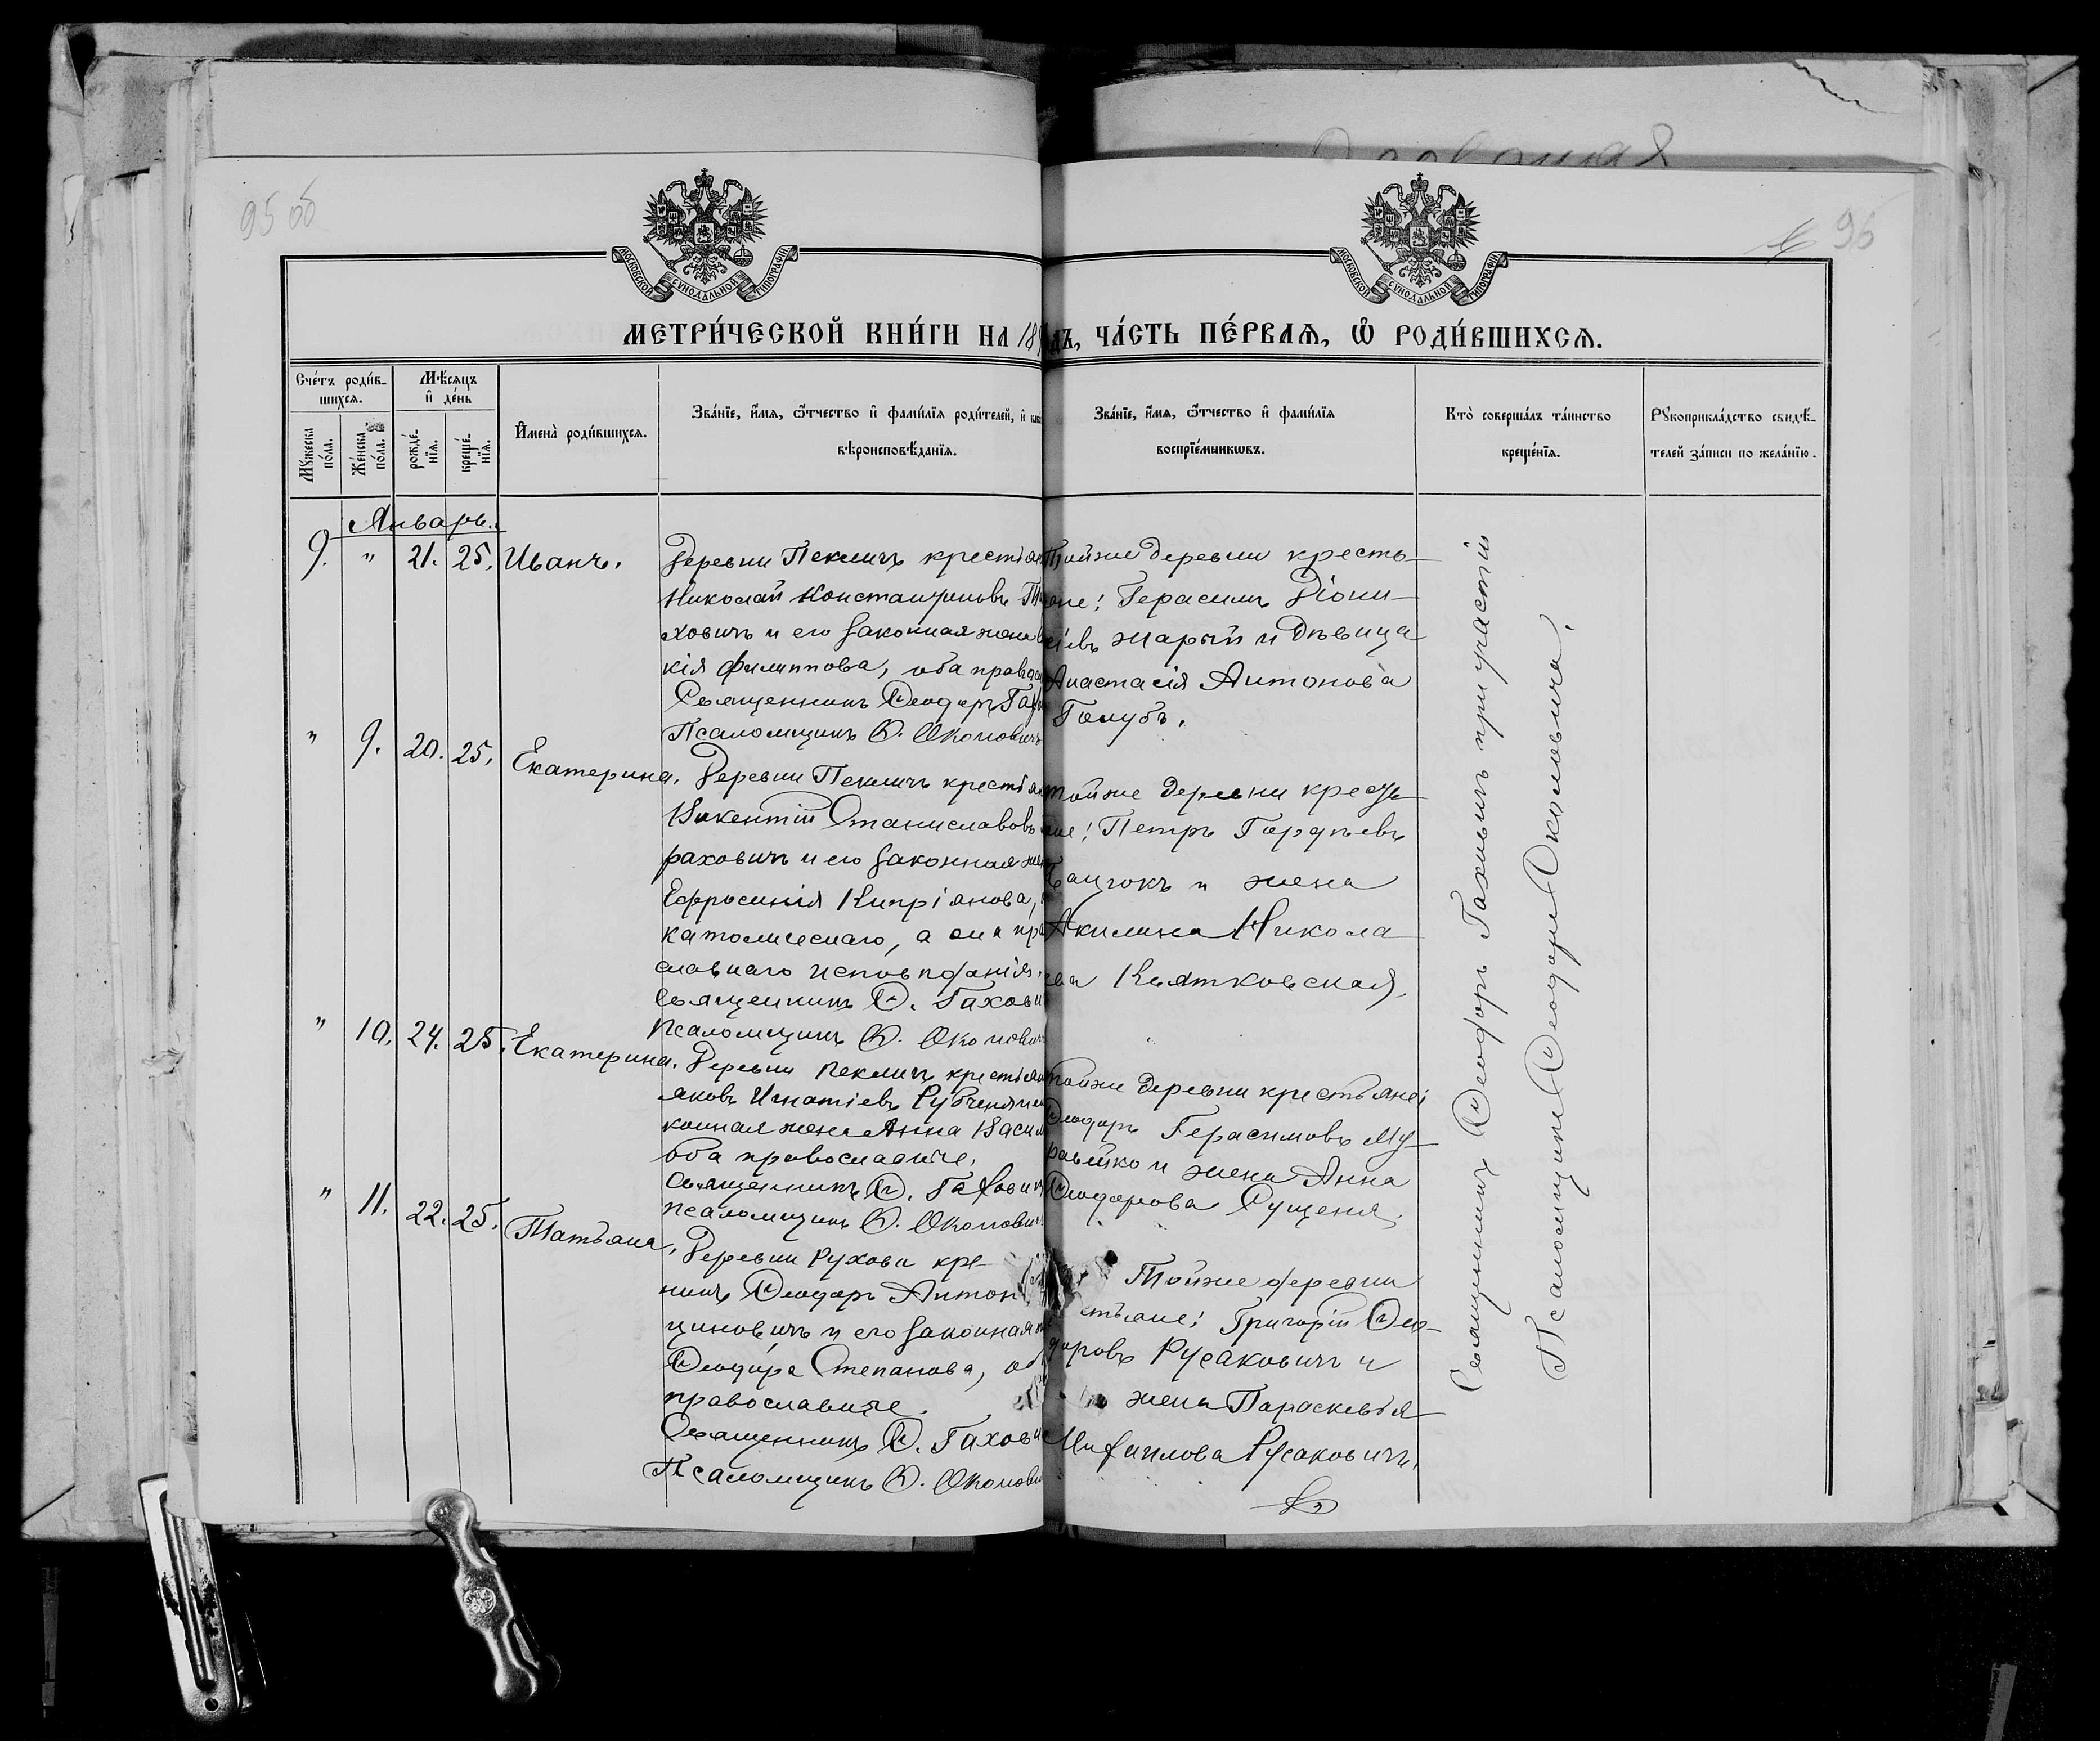 95 об
96
МОСКОВСКОЙ СѴНОДАЛЬНОЙ ТИПОГРАФІИ
МОСКОВСКОЙ СѴНОДАЛЬНОЙ ТИПОГРАФІИ
МЕТРИ́ЧЕСКОЙ КНИ́ГИ НА 189 ДЪ, ЧА́СТЬ ПЕ́РВАЯ, Ѡ҆ РОДИ́ВШИХСЯ.
Сче́тъ роди́в-
шихся.
Мѣ́сяцъ
и҆ де́нь
Мꙋ́жеска
по́ла.
Же́нска
по́ла.
рожде́-
нїя.
креще́-
нїя.
И҆мена̀ роди́вшихся.
Зва́нїе, и҆́мя, ѻ҆́тчество и҆ фами́лїя роди́телей, и҆
вѣроисповѣ́данїя.
Зва́нїе, и҆́мя, ѻ҆́тчество и҆ фами́лїя
воспрїе́мникѡвъ.
Кто̀ соверша́лъ та́инство
креще́нїя.
Рꙋкоприкла́дство свидѣ́-
телей за́писи по жела́нїю.
Январь.
9. " 21. 25. Иванъ.
Деревни Пекличъ крестьян
Николай Константиновъ
ховичъ и его законная жена
кія Филиппова, оба правос
Священникъ Ѳеодоръ Гах
Псаломщикъ Ѳ. Околовичъ
Тойже деревни кресть-
яне: Герасимъ Діони-
сіевъ Жарый и дѣвица
Анастасія Антонова
Голубъ.
" 9. 20. 25. Екатерина.
Деревни Пекличъ крестьян
Викентій Станиславовъ
раховичъ и его законная же
Ефросинія Кипріанова,
католическаго, а она пра
славнаго исповѣданія.
Священникъ Ѳ. Гахови
Псаломщикъ Ѳ. Околович
тойже деревни кресть-
яне: Петръ Гордѣевъ
и жена
Акилина Никола
ева Квятковская.
" 10. 24. 25. Екатерина.
Деревни Пекличъ крестьян
Яковъ Игнатіевъ Рубченя и
конная жена Анна Васил
оба православные.
Священникъ Ѳ. Гахович
Псаломщикъ Ѳ. Околович
тойже деревни крестьяне:
Ѳеодоръ Герасимовъ Му-
равейко и жена Анна
Ѳеодорова Сущеня.
" 11. 22. 25. Татьяна.
Деревни Рухова кре
нинъ Ѳеодоръ Антон
циновичъ и его законная
Ѳеодора Степанова, об
православные.
Священникъ Ѳ. Гахови
Псаломщикъ Ѳ. Околови
Тойже деревни
стьяне: Григорій Ѳео-
доровъ Русаковичъ и
жена Параскевія
Михаилова Русаковичъ.
Священникъ Ѳеодоръ Гаховичъ при участіи
Псаломщика Ѳеодора Околовича.